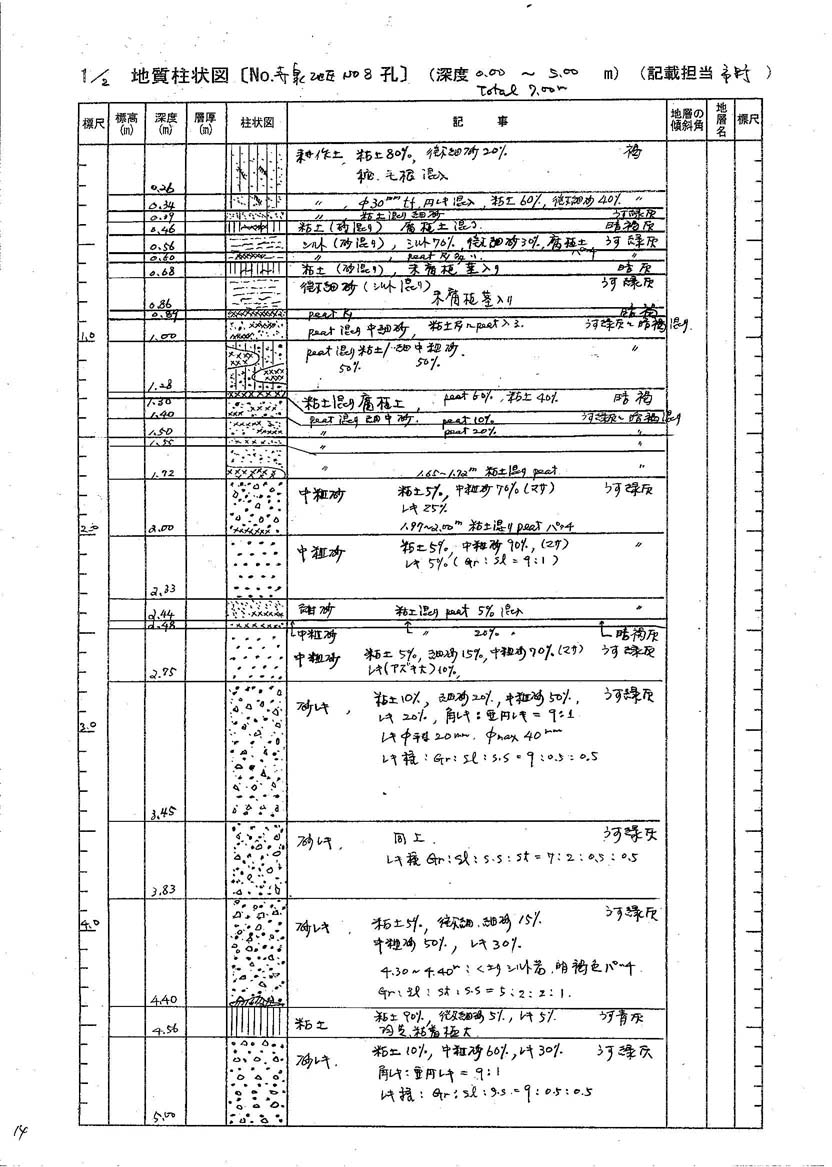 1/2 地質柱状図〔No.寺泉地区 No 8 孔〕 (深度 0.00 ~ 5.00 m) (記載担当 )
Total 7.00m
標尺 標高(m) 深度(m) 層厚(m) 柱状図 記 事 地層の傾斜角 地層名 標尺
耕作土, 粘土80%, 微細砂20% 褐
毛根混入
0.26
0.34 〃, φ30mm±, 円レキ混入, 粘土60%, 微細砂40% 〃
0.39 〃 粘土混り細砂 うす緑灰
0.46 粘土(砂混り) 腐植土混り 暗褐灰
0.56 シルト(砂混り), シルト70%, 微細砂30%, 腐植土パッチ うす緑灰
0.60 〃 , peat 〃
0.68 粘土(砂混り), 未腐植茎入り 暗灰
微細砂(シルト混り) うす緑灰
未腐植茎入り
0.86
0.89 peat 暗褐
1.0
1.00 peat混り中細砂, 粘土 peat入る. うす緑灰~暗褐混り
peat混り粘土/細中粗砂. 〃
50% 50%
1.28
1.30 粘土混り腐植土, peat 60%, 粘土40% 暗褐
1.40 peat混り細中砂. peat 10% うす緑灰~暗褐混り
1.50 〃 peat 20% 〃
1.55 〃
1.72 〃 1.65~1.72m 粘土混りpeat 〃
中粗砂 粘土5%, 中粗砂70%(マサ) うす緑灰
レキ25%
2.0
2.00 1.97~2.00m 粘土混りpeatパッチ
中粗砂 粘土5%, 中粗砂90%, (マサ) 〃
レキ5%(Gr:Sl=9:1)
2.33
2.44 細砂 粘土混りpeat 5%混入 〃
2.48 中粗砂 〃 20% 〃 暗褐灰
中粗砂 粘土5%, 細砂15%, 中粗砂70%(マサ) うす緑灰
2.75 レキ(アズキ大)10%,
砂レキ, 粘土10%, 細砂20%, 中粗砂50%, うす緑灰
レキ20%, 角レキ:亜円レキ=9:1
3.0
レキφ平均20mm. φmax 40mm
レキ種:Gr:Sl:S.S=9:0.5:0.5
3.45
砂レキ, 同上 うす緑灰
レキ種 Gr:Sl:S.S:St=7:2:0.5:0.5
3.83
うす緑灰
4.0
砂レキ 粘土5%, 微細.細砂15%
中粗砂50%, レキ30%.
4.30~4.40m:くさりシルト岩.明褐色パッチ
4.40 Gr:Sl:St:S.S=5:2:2:1.
4.56 粘土 粘土90%, 微細砂5%, レキ5% うす青灰
均質.粘着極大
砂レキ. 粘土10%, 中粗砂60%, レキ30% うす緑灰
角レキ:亜円レキ=9:1
レキ種:Gr:Sl:S.S=9:0.5:0.5
5.00
14